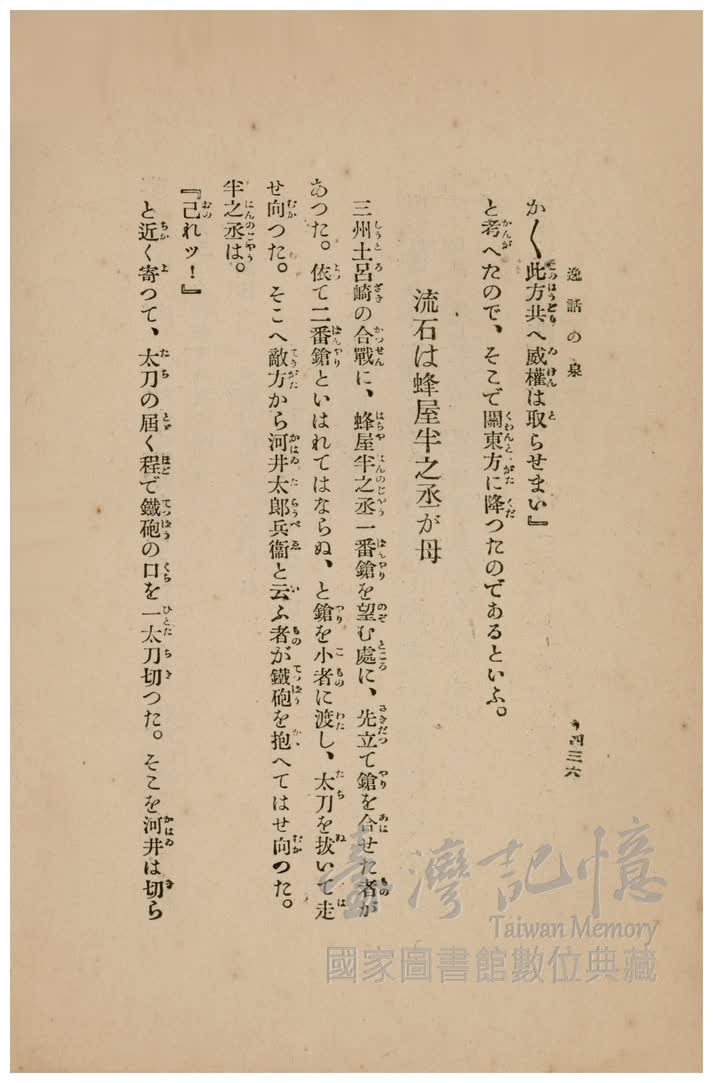 逸話の泉
四三六
かく此方共へ威權は取らせまい』
と考へたので、そこで關東方に降つたのであるといふ。
流石は蜂屋半之丞が母
三州土呂崎の合戰に、蜂屋半之丞一番鎗を望む處に、先立て鎗を合せた者が
あつた。依て二番鎗といはれてはならぬ、と鎗を小者に渡し、太刀を拔いて走
せ向つた。そこへ敵方から河井太郎兵衞と云ふ者が鐵砲を抱へてはせ向つた。
半之丞は。
『己れッ！』
と近く寄つて、太刀の屆く程で鐵砲の口を一太刀切つた。そこを河井は切ら
臺灣記憶
Taiwan Memory
國家圖書館數位典藏